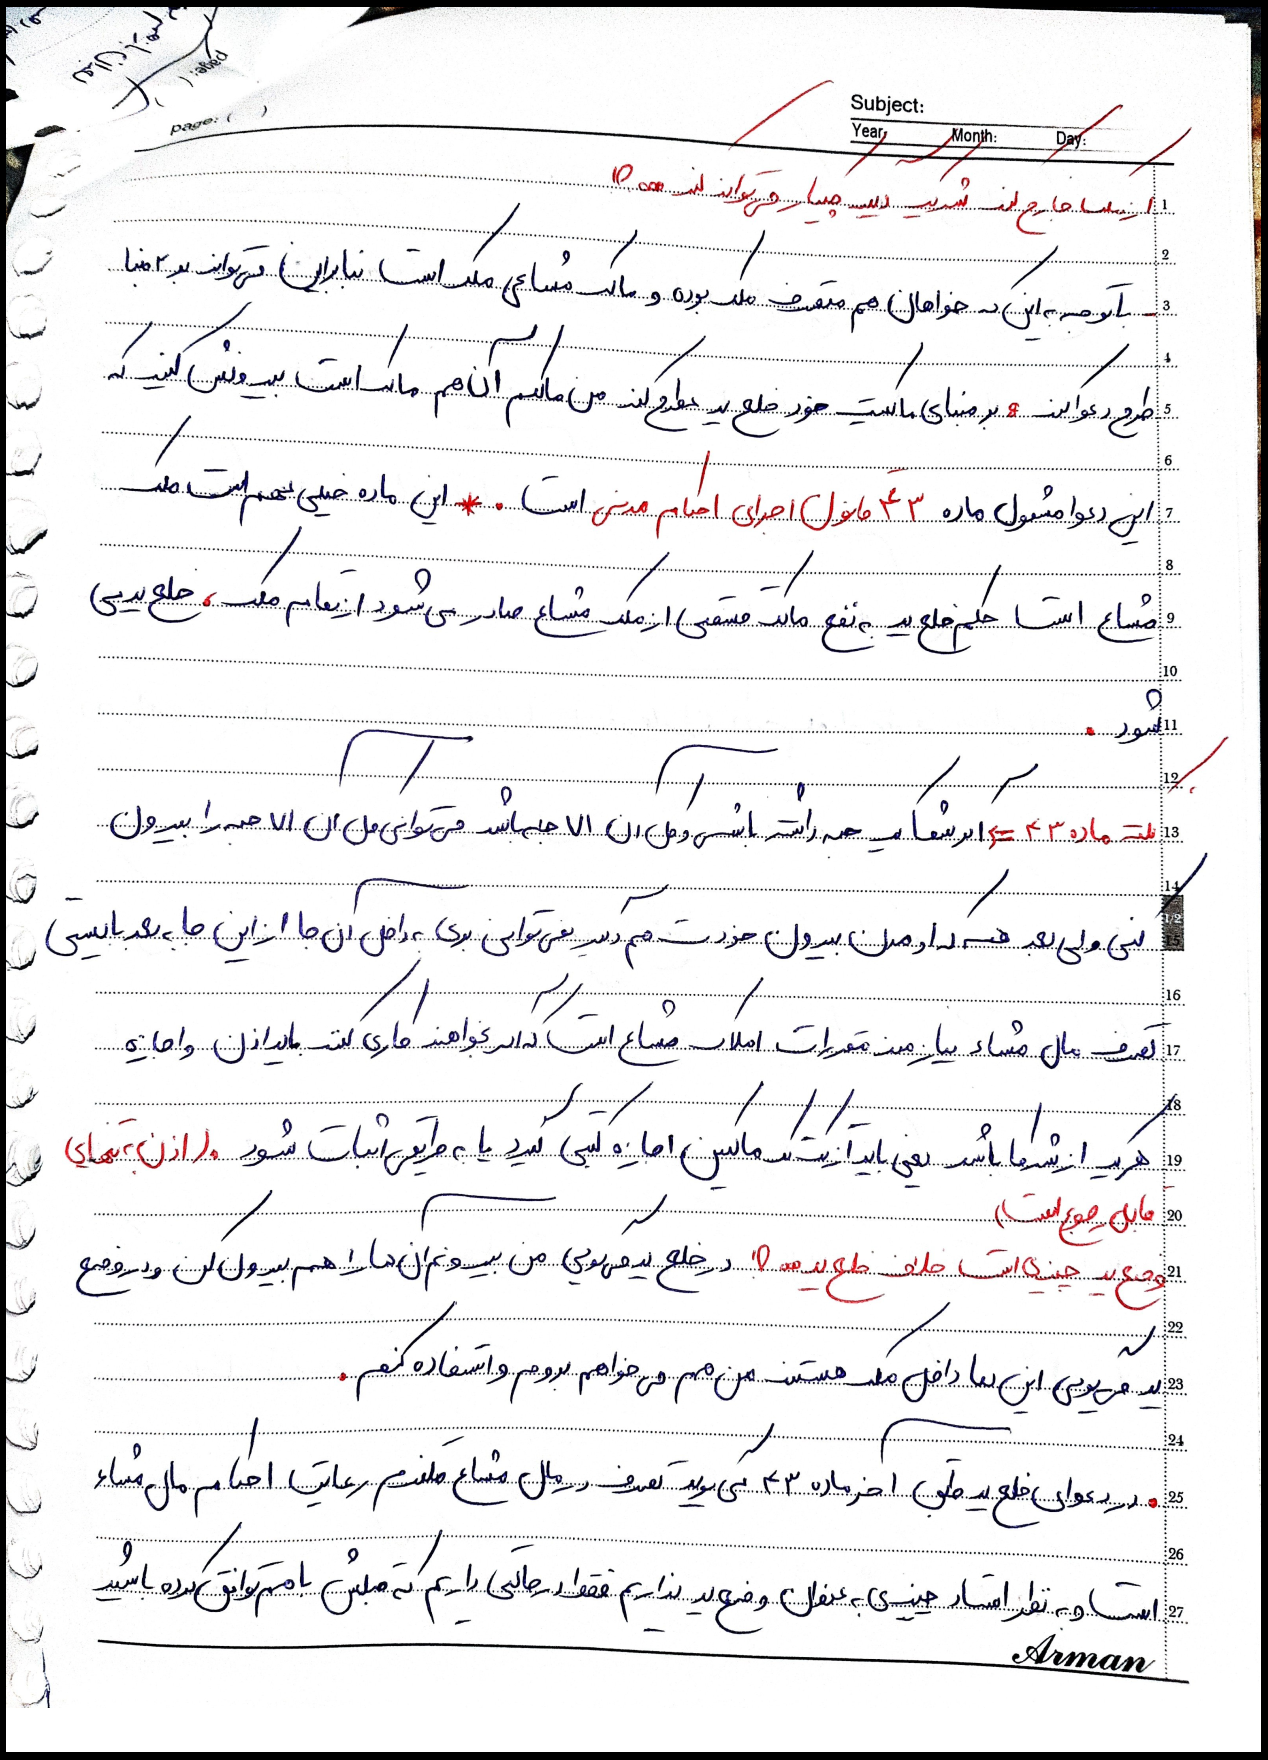 page: ( )
Subject:
Year: Month: Day:
از ید خارج کند شریک دیگر چیکار می‌تواند کند ؟
با توجه به این که خواهان هم متصرف ملک بوده و مالک مشاعی ملک است بنابراین می‌تواند بر ۲ مبنا
طرح دعوا کند ؛ بر مبنای مالکیت خود خلع ید مطرح کند من مالکم آن هم مالک است بیرونش کنید که
این دعوا مشمول ماده ۴۳ قانون اجرای احکام مدنی است . * این ماده خیلی مهم است ملک
مشاع است حکم خلع ید به نفع مالک قسمتی از ملک مشاع صادر می‌شود از تمام ملک ، خلع ید می
شود .
نکته ماده ۴۳ ⇐ اگر شما یک حبه داشته باشی و کل آن ۷۱ حبه باشد می‌توانی کل آن ۷۱ حبه را بیرون
کنی ولی بعد خودت هم دیگر نمی‌توانی بری به داخل آن جا از این جا به بعد بایستی
تصرف مال مشاء نیازمند مقررات املاک مشاع است که اگر بخواهند کاری کنند باید اذن و اجازه
هر یک از شرکا باشد یعنی باید از تک تک مالکین اجازه کتبی گیرد یا به طریقی اثبات شود . (اذن به تنهایی
قابل رجوع است)
وضع ید چیزی است خلاف خلع ید ؟ در خلع ید می‌گویی من بیرونم آن ها را هم بیرول کن ودر وضع
ید می‌گویی این ها داخل ملک هستند من هم می‌خواهم بروم و استفاده کنم .
. در دعوای خلع ید طبق آخر ماده ۴۳ می‌گوید تصرف در مال مشاع ملتزم رعایت احکام مال مشاء
است و به نظر استاد چیزی به عنوان وضع ید نداریم فقط در حالتی داریم که قبلش با هم توافق کرده باشید
Arman